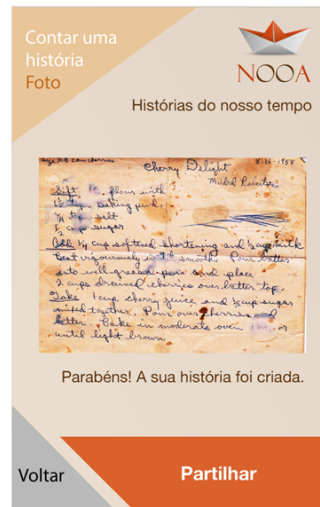 Contar uma
história
Foto
NOOA
Histórias do nosso tempo
Cherry Delight
8-16-1958
Sift 1 c. flour with
baking pwd.
salt
sugar
Add 1/4 cup softened shortening and 1/2 cup milk
Beat vigorously until smooth. Pour batter
into well-greased pan and place
2 cups drained cherries over batter top.
Bake 1 cup cherry juice and 1/2 cup sugar
mixed together. Pour over cherries and
batter. Bake in moderate oven
until light brown.
Parabéns! A sua história foi criada.
Voltar
Partilhar